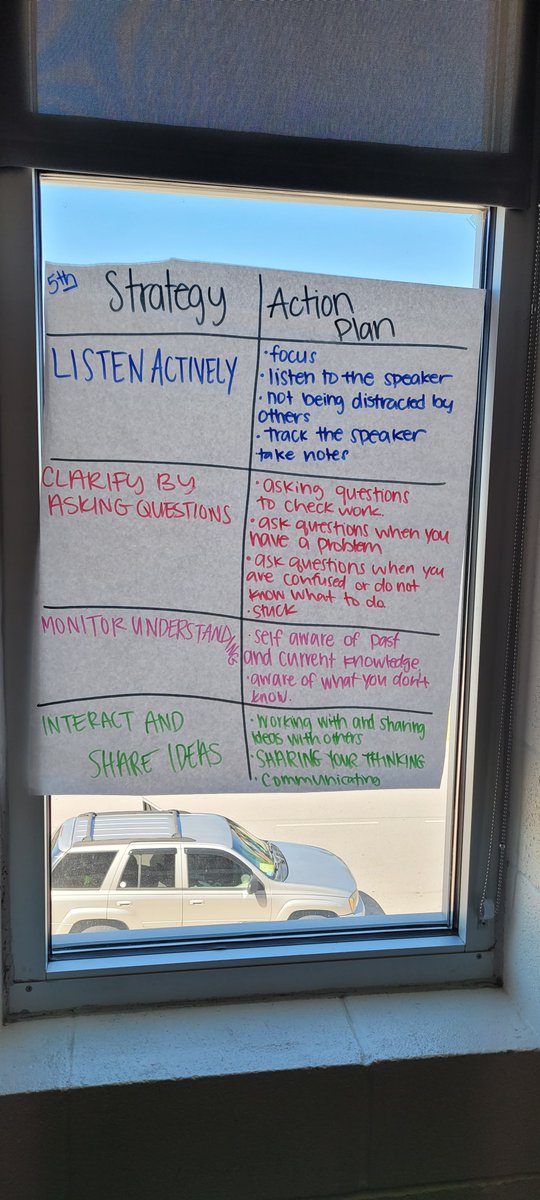 5th Strategy
Action
Plan
LISTEN ACTIVELY
• focus
• listen to the speaker
• not being distracted by
others
• track the speaker
take notes
CLARIFY BY
ASKING QUESTIONS
• asking questions
to check work.
• ask questions when you
have a problem
• ask questions when you
are confused or do not
know what to do
• stuck
MONITOR UNDERSTANDING
• self aware of past
and current knowledge
• aware of what you don't
know.
INTERACT AND
SHARE IDEAS
• working with and sharing
ideas with others
• SHARING YOUR THINKING
• communicating